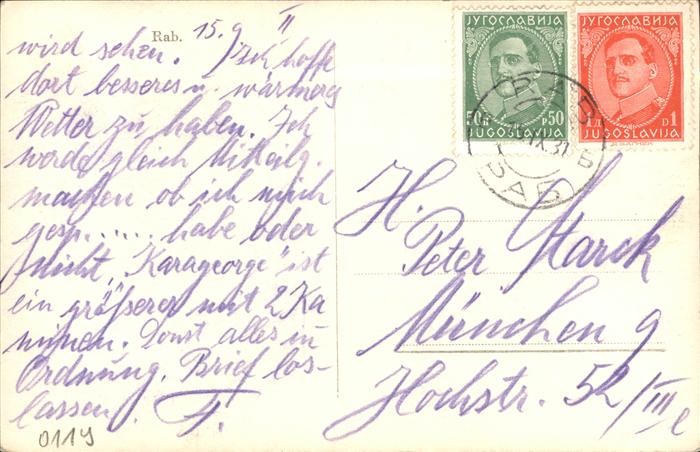 Rab. 15.9 II
wird sehen. Ich hoffe
dort besseres u. wärmeres
Wetter zu haben. Ich
werde gleich Mitteilg.
machen ob ich mich
gesp..... habe oder
nicht. „Karageorge" ist
ein größerer mit 2 Ka
minen. Sonst alles in
Ordnung. Brief los-
lassen. F.
0119
ЈУГОСЛАВИЈА
50п p50
JUGOSLAVIJA
ЈУГОСЛАВИЈА
1д D1
JUGOSLAVIJA
РАБ
IX.31
РАБ
H.
Peter Starck
München 9
Hochstr. 52/III e